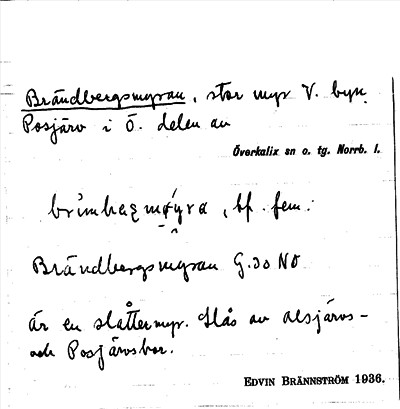 Brändbergsmyran, stor myr V. byn
Posjärv i Ö. delen av
Överkalix sn o. tg. Norrb. l.
, bf. fem.
Brändbergsmyran G.30 NO
är en slåttermyr. Slås av alsjärvs-
och Posjärvsbor.
EDVIN BRÄNNSTRÖM 1936.